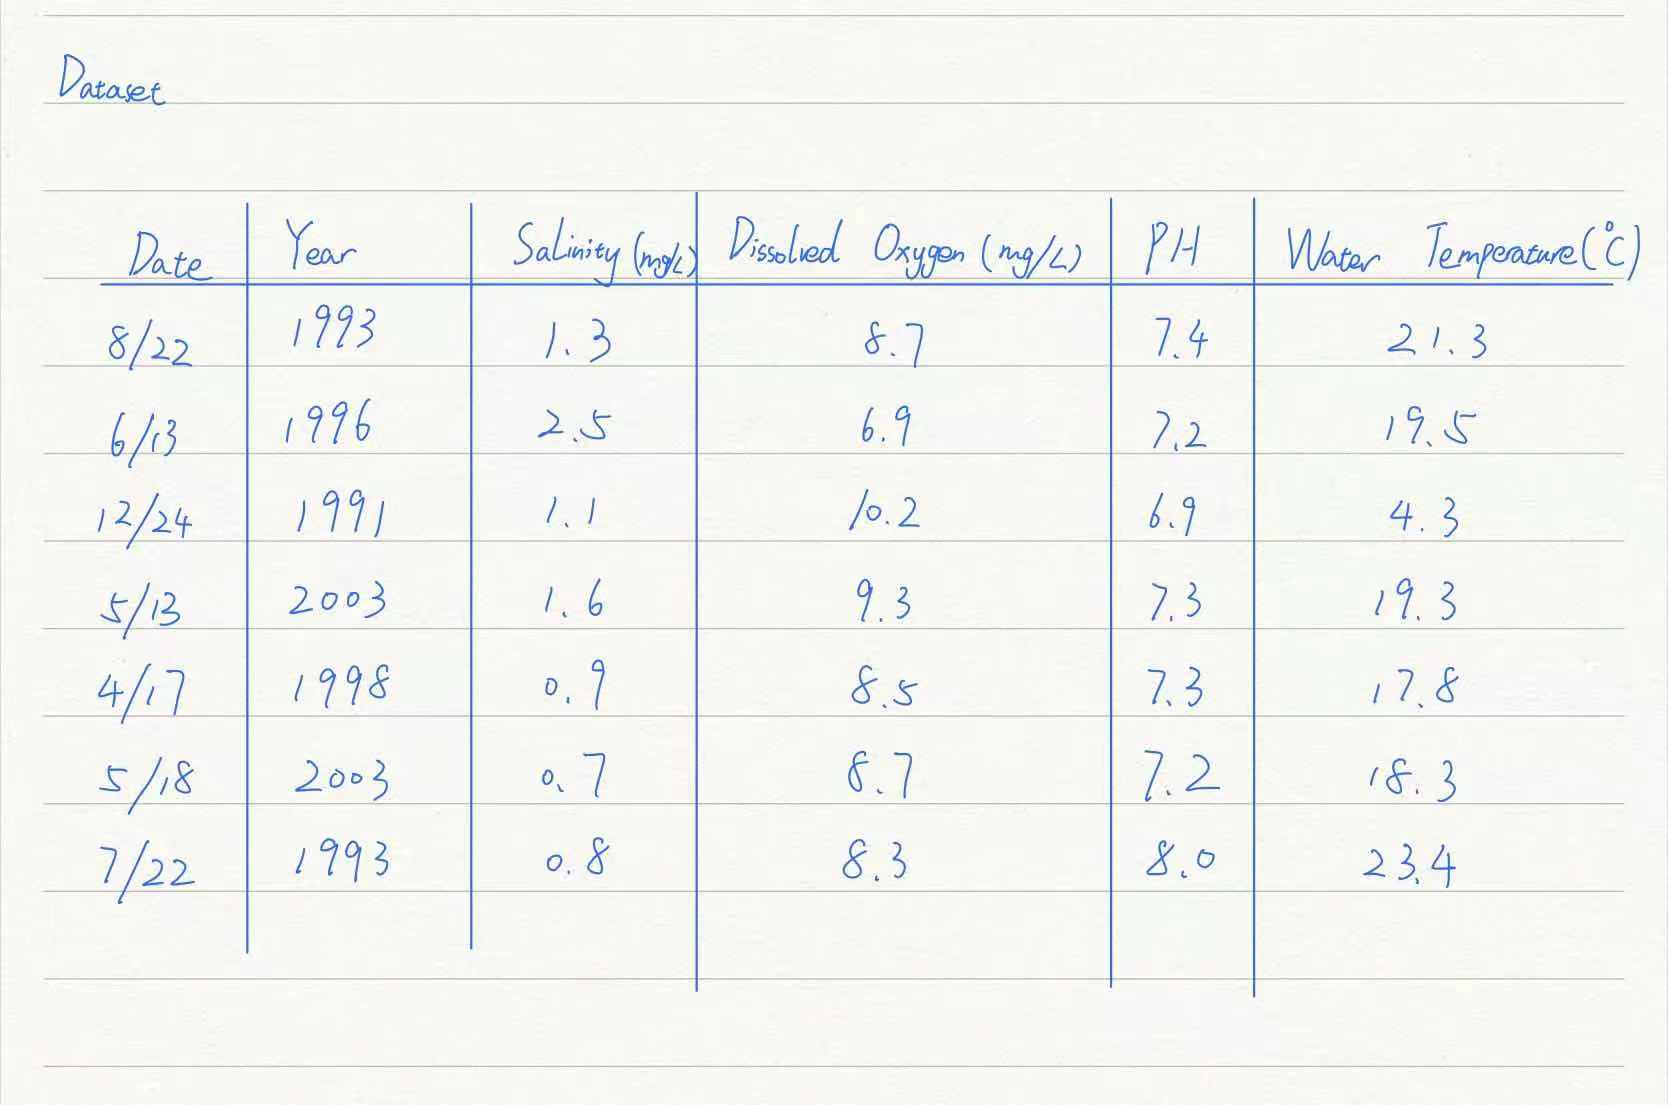 Dataset
Date Year Salinity (mg/L) Dissolved Oxygen (mg/L) PH Water Temperature (°C)
8/22 1993 1.3 8.7 7.4 21.3
6/13 1996 2.5 6.9 7.2 19.5
12/24 1991 1.1 10.2 6.9 4.3
5/13 2003 1.6 9.3 7.3 19.3
4/17 1998 0.9 8.5 7.3 17.8
5/18 2003 0.7 8.7 7.2 18.3
7/22 1993 0.8 8.3 8.0 23.4